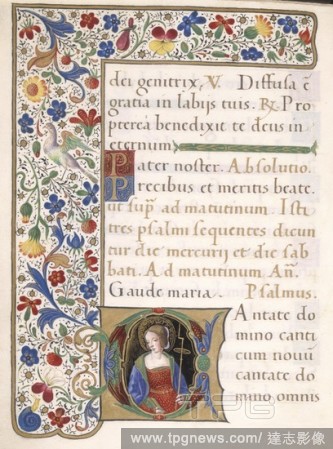 dei genitrix, V. Diffusa ē
gratia in labijs tuis. R. Pro
pterea benedixit te deus in
eternum
Pater noster. Absolutio.
Precibus et meritis beate.
ut sup̄ ad matutinum. Isti
tres psalmi sequentes dicun
tur die mercurij et die sab
bati. Ad matutinum Añ.
Gaude maria. Psalmus.
Cantate do
mino canti
cum nouū
cantate do
mino omnis
TPG
www.tpgnews.com/ 達志影像